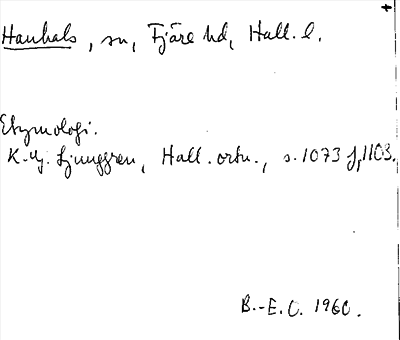 Hanhals, sn, Fjäre hd, Hall. l.
Etymologi.
K.-G. Ljunggren, Hall. ortn., s. 1073 f, 1103.
B.-E. O. 1960.